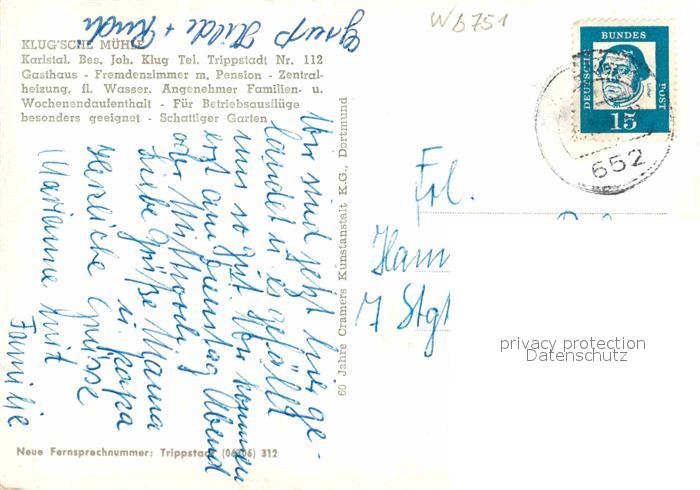 Gruß Hilde + Rudi
Wb751
KLUG'SCHE MÜHLE
Karlstal. Bes. Joh. Klug Tel. Trippstadt Nr. 112
Gasthaus - Fremdenzimmer m. Pension - Zentral-
heizung, fl. Wasser. Angenehmer Familien- u.
Wochenendaufenthalt - Für Betriebsausflüge
besonders geeignet - Schattiger Garten
Wir sind jetzt hier ge-
landet u. es gefällt
uns so gut. Wir kommen
erst am Dienstag Abend
oder Mittwoch.
Liebe Grüße Mama
u. Papa
Herzliche Grüsse
Marianne mit
Familie
Neue Fernsprechnummer: Trippstadt (06306) 312
60 Jahre Cramers Kunstanstalt K.G., Dortmund
DEUTSCHE
BUNDES
POST
Luther
15
652
Frl.
7 Stgt
privacy protection
Datenschutz